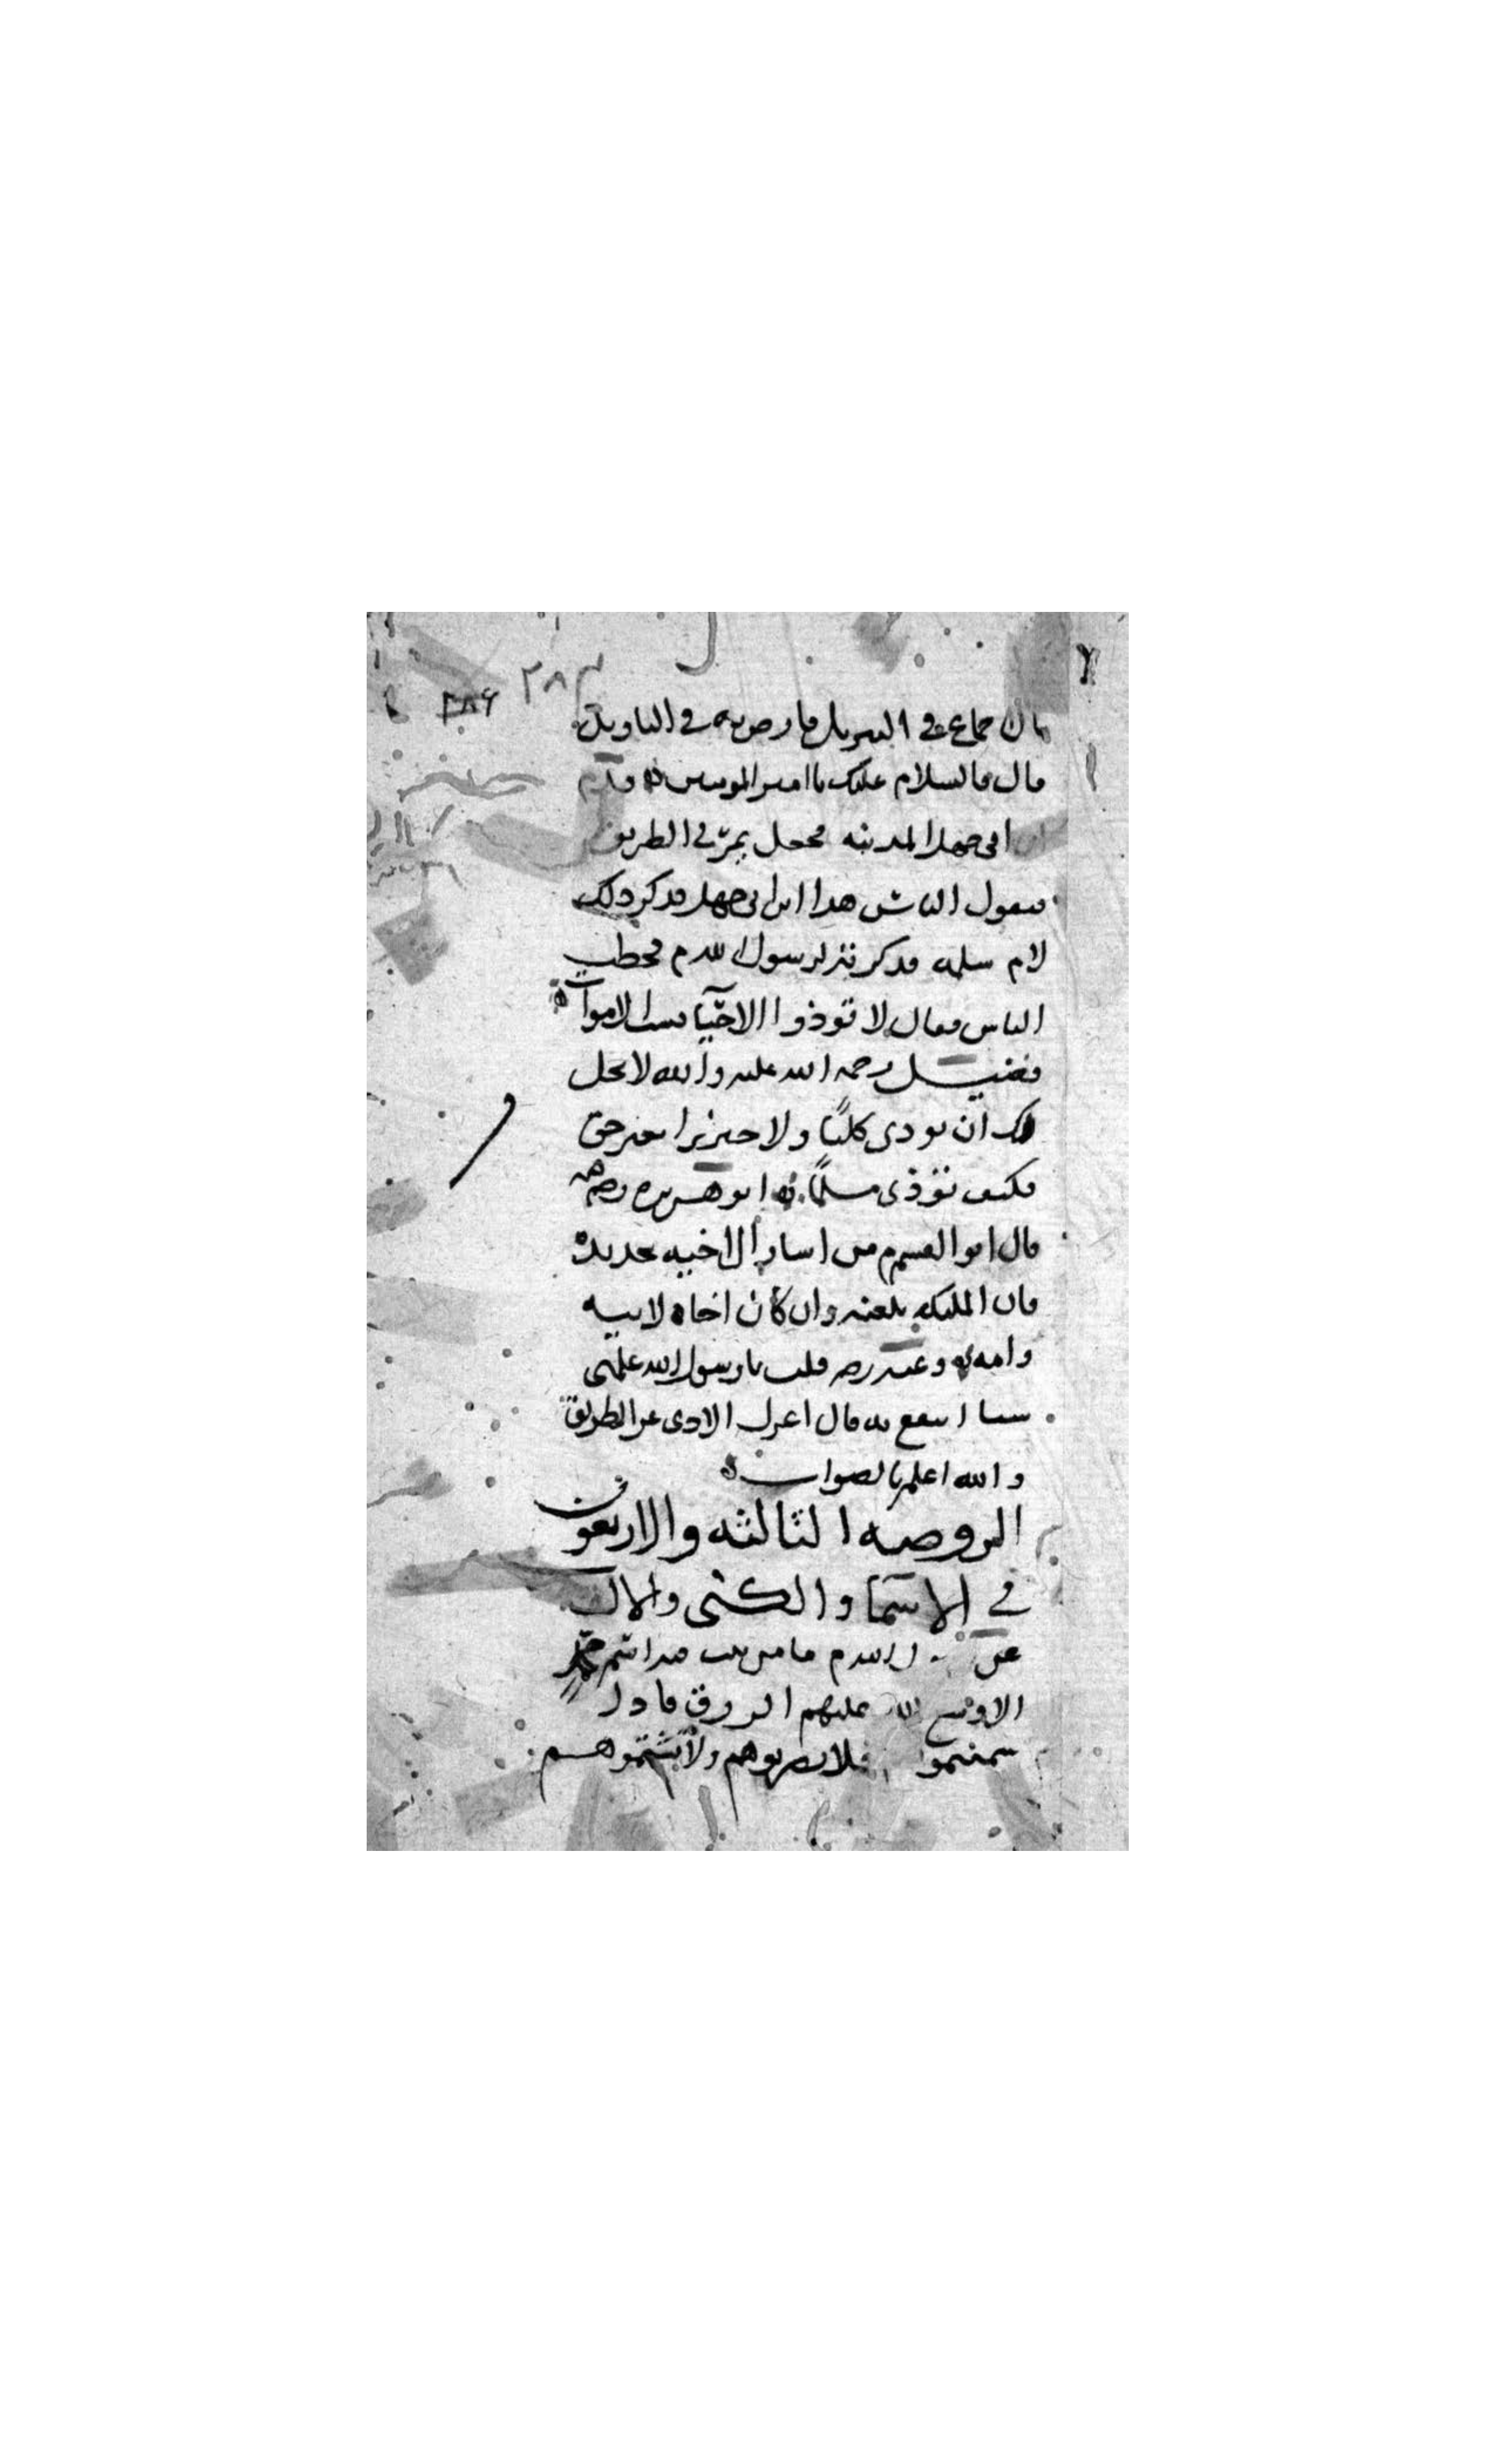 ٢٨٣
٢٨٤
قال جماع في التنزيل فارضيه في التاويل
قال فالسلام عليك يا امير المومنين ه وقدم
ابن ابي جهل المدينه فجعل يمرّ في الطريق
فيقول الناس هذا ابن ابي جهل فذكر ذلك
لام سلمه فذكرته لرسول الله م فخطب
الناس فقال لا توذوا الاحيآ بسب الاموات ه
فضيل رحمه الله عليه والله لا يحل
لك ان توذى كلبًا ولا خنزيرا بغير حق
فكيف تؤذى مسلمًا ه ابو هريره رضه
قال ابو القسم م من اشار الا اخيه بحديده
فان المليكه تلعنه وان كان اخاه لابيه
وامه ه وعنه رضه قلت يا رسول الله علمنى
شيا انتفع به قال اعزل الاذى عن الطريق
والله اعلم بالصواب ه
الروضه الثالثه والاربعون
في الاسمآ والكنى والالقاب
عن الله م ما من بيت فيه اسم محمد
الا وسع الله عليهم الرزق فاذا
سميتموا فلا تضربوهم ولا تشتموهم